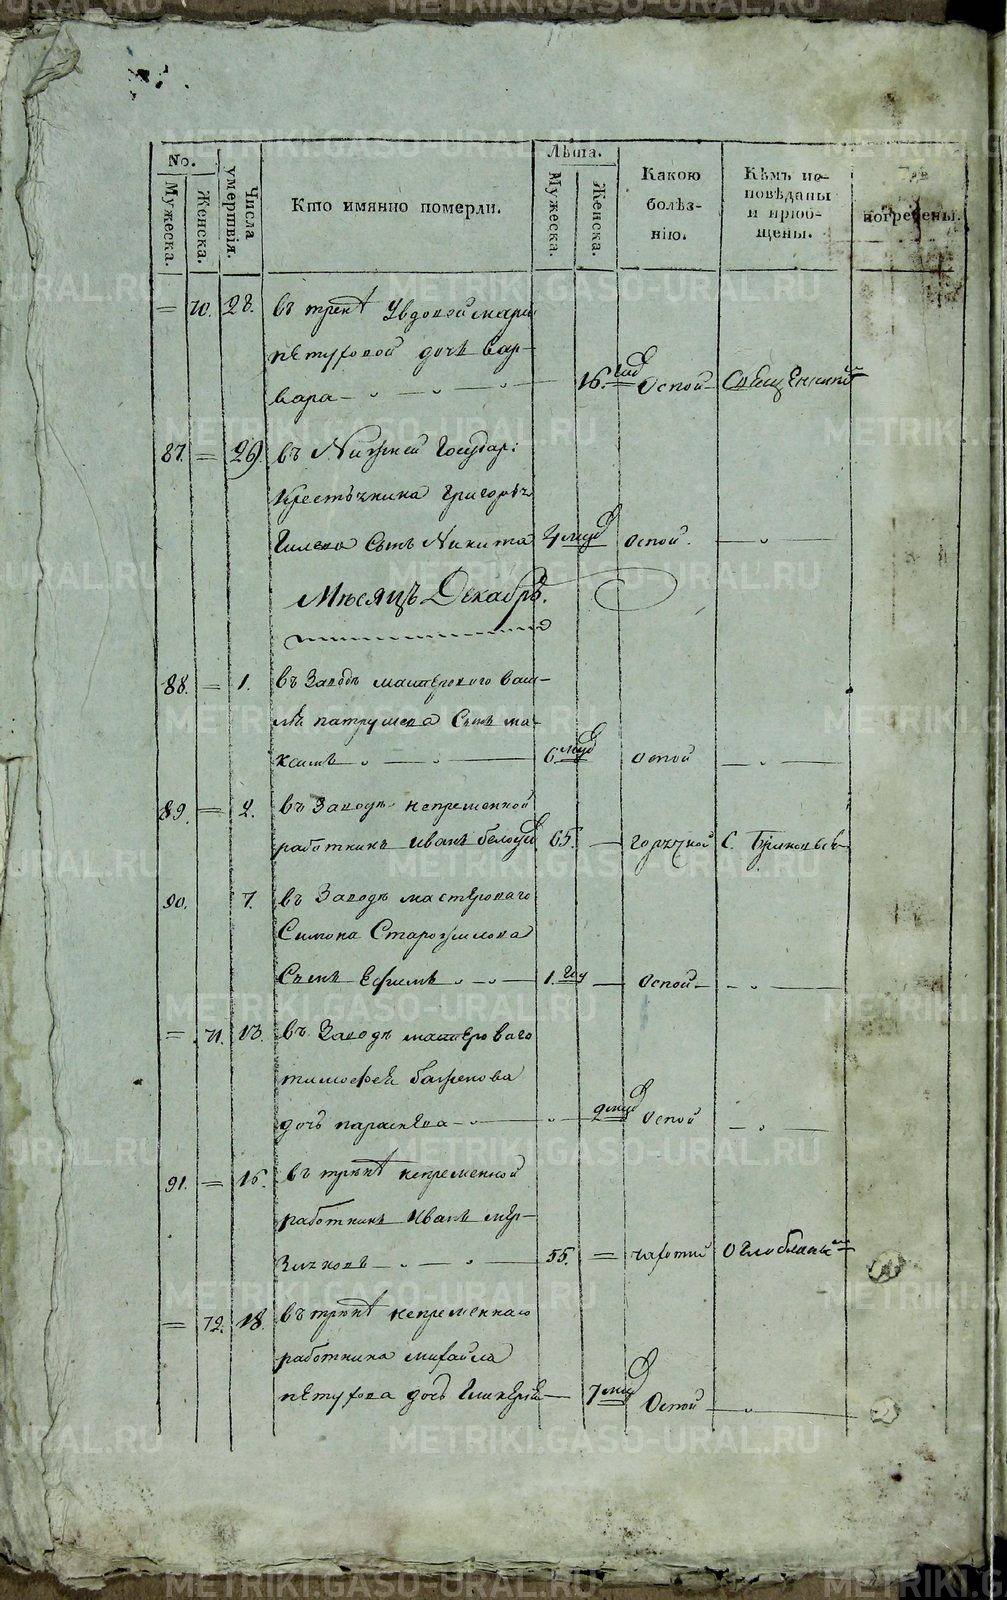 No.
Мужеска.
Женска.
Числа умертвія.
Кто имянно померли.
Лѣта.
Мужеска.
Женска.
Какою болѣз-
нію.
Кѣмъ ис-
повѣданы
и пріоб-
щены.
Гдѣ
погребены.
= 70. 28. въ трек Увдовой Марьи
Петуховой дочь Вар-
вара 16. Оспой Священник
87. = 29. въ Нижней Государ:
Крестьянина Григорья
Гилева Сынъ Никита 4 Оспой.
Мѣсяцъ Декабрь.
88. = 1. въ Заводѣ мастероваго Васи-
лья Патрушева Сынъ Ма-
ксимъ 6 Оспой
89. = 2. въ Заводѣ непременной
работникъ Иванъ 65. горячкой С.
90. 7. въ Заводѣ мастероваго
Симона Старожилова
Сынъ Ефимъ 1. Оспой
= 71. 13. въ Заводѣ мастероваго
Тимофея Баженова
дочь Парасковья 2 Оспой
91. = 15. въ непременной
работникъ Иванъ Мер-
зляковъ 55. = чахоткой
= 72. 18. въ непременнаго
работника Михайла
Петухова дочь Гликерія 7 Оспой
METRIKI.GASO-URAL.RU